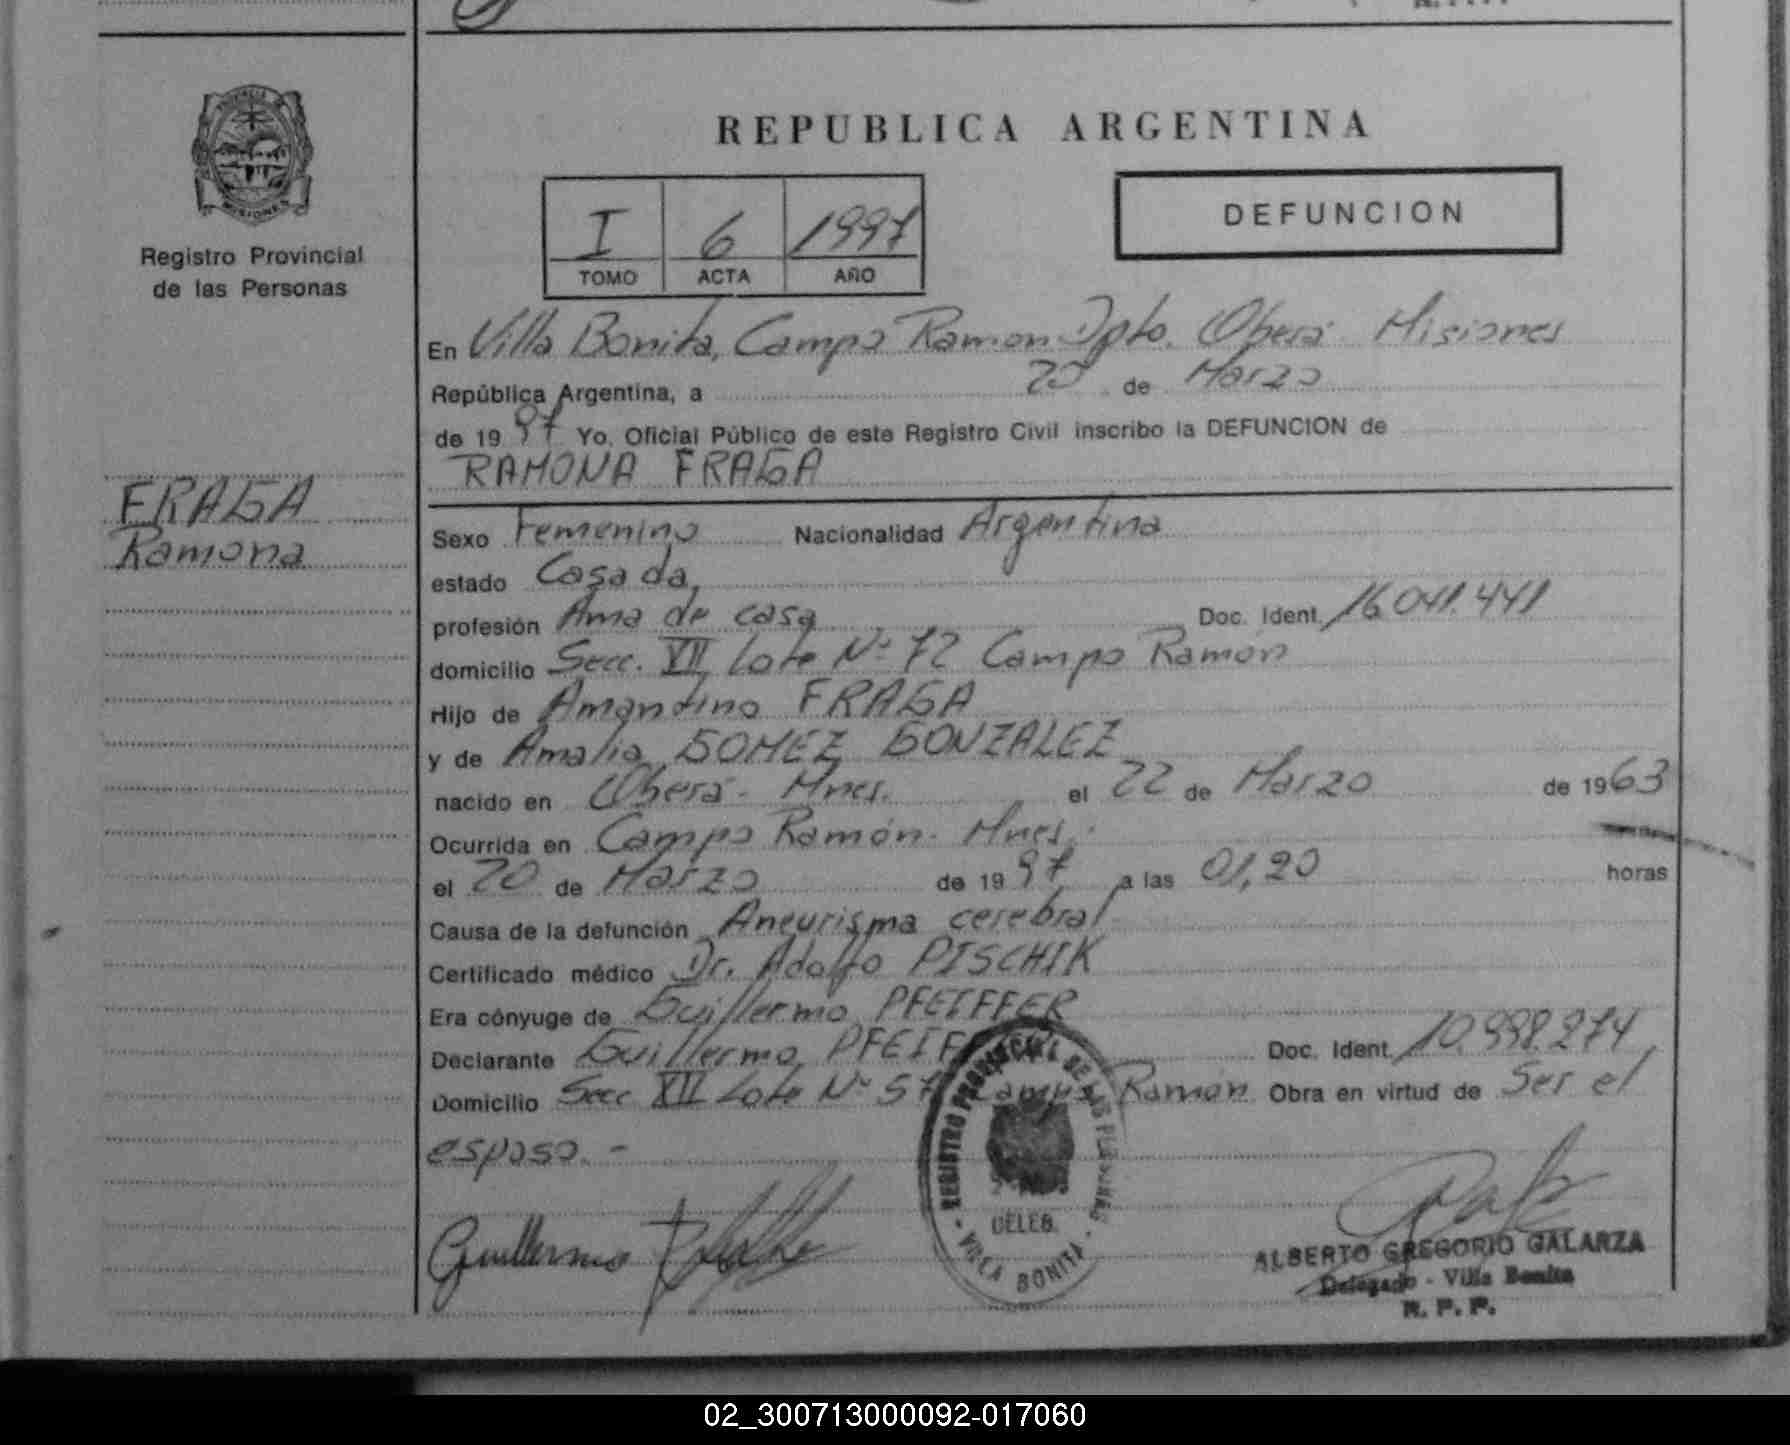 REPUBLICA ARGENTINA
PROVINCIA DE
MISIONES
Registro Provincial
de las Personas
I 6 1997
TOMO ACTA AÑO
DEFUNCION
En Villa Bonita, Campo Ramon Dpto. Oberá - Misiones
República Argentina, a 20 de Marzo
de 1997 Yo, Oficial Público de este Registro Civil inscribo la DEFUNCION de
RAMONA FRAGA
FRAGA
Ramona
Sexo Femenino Nacionalidad Argentina
estado Casada,
profesión Ama de casa Doc. Ident. 16.041.441
domicilio Secc. VII Lote Nº 72 Campo Ramón
Hijo de Amantino FRAGA
y de Amalia GOMEZ GONZALEZ
nacido en Oberá - Mnes. el 22 de Marzo de 1963
Ocurrida en Campo Ramón - Mnes.
el 20 de Marzo de 1997 a las 01,20 horas
Causa de la defunción Aneurisma cerebral
Certificado médico Dr. Adolfo PISCHIK
Era cónyuge de Guillermo PFEIFFER
Declarante Guillermo PFEIFFER Doc. Ident. 10.998.274
Domicilio Secc XII Lote Nº 57 Campo Ramón Obra en virtud de Ser el
esposo. -
REGISTRO PROVINCIAL DE LAS PERSONAS
DELEG.
- VILLA BONITA -
Guillermo
ALBERTO GREGORIO GALARZA
Delegado - Villa Bonita
R. P. P.
02_300713000092-017060